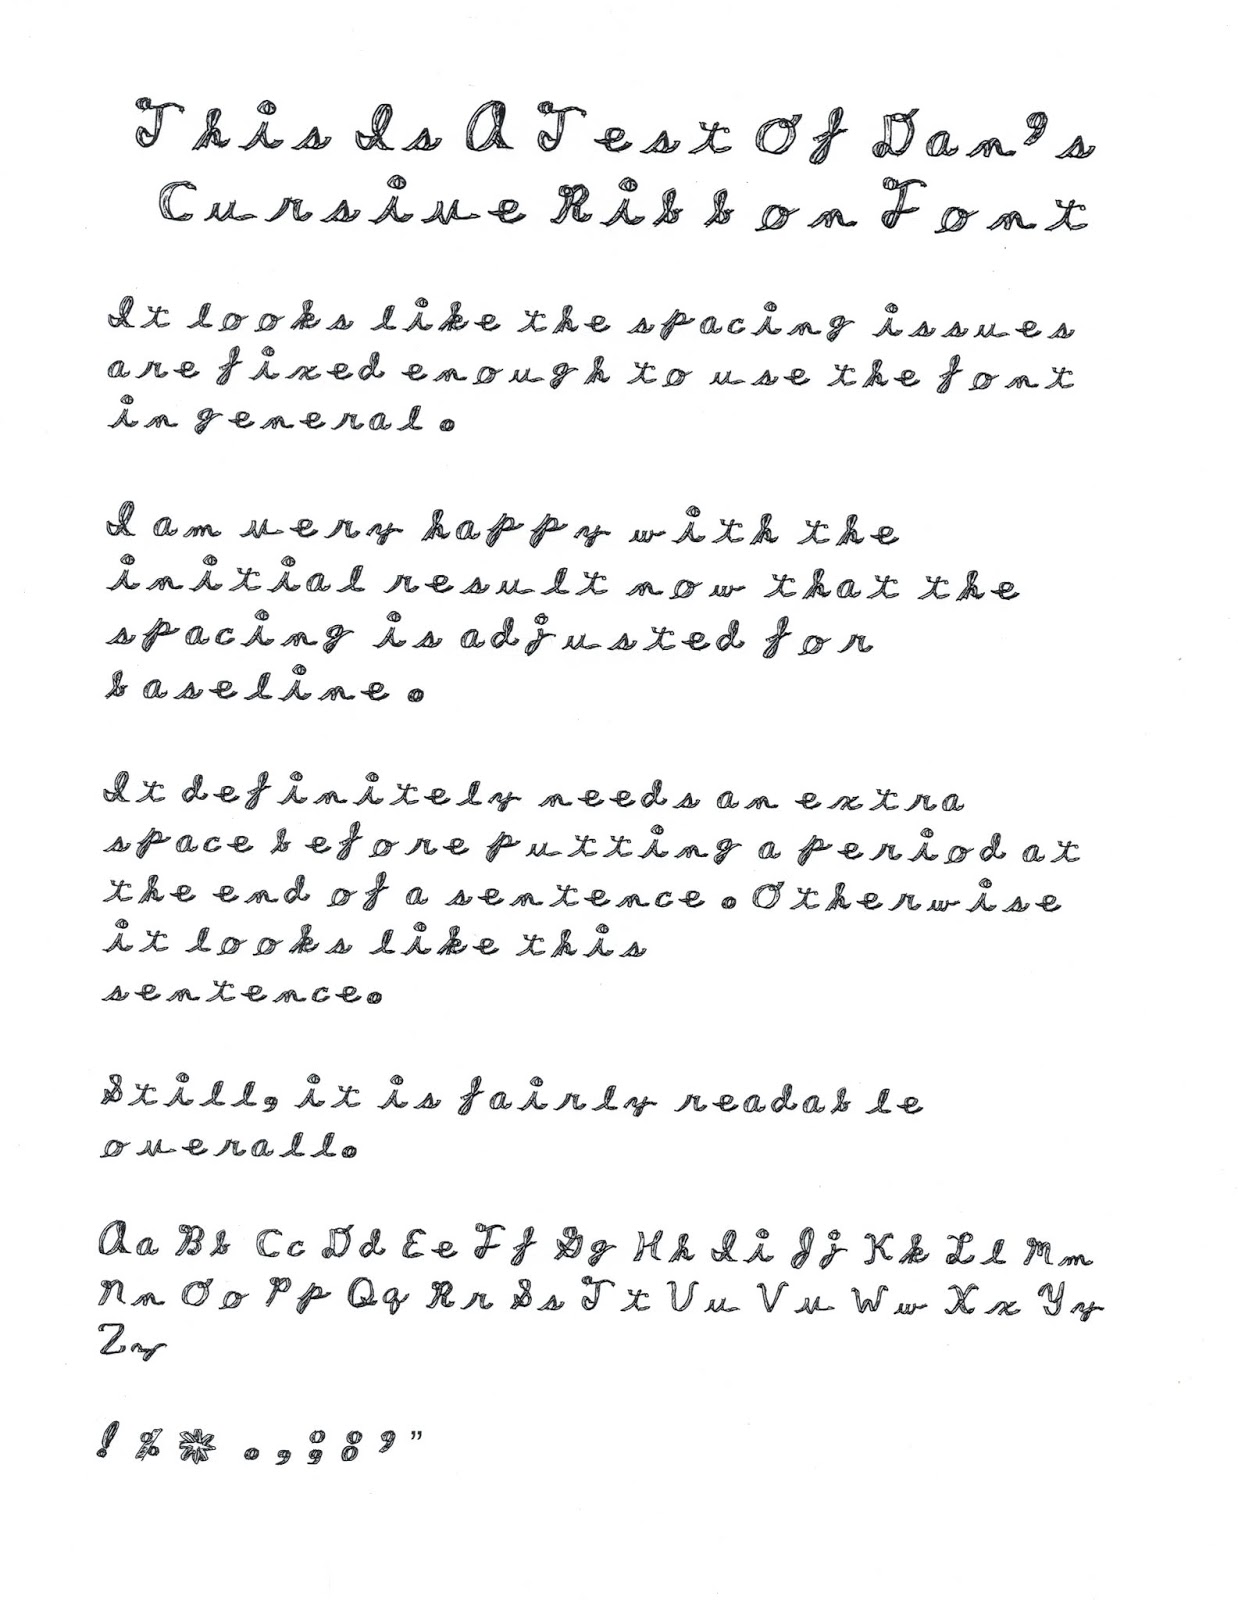 This Is A Test Of Dan's
Cursive Ribbon Font
It looks like the spacing issues
are fixed enough to use the font
in general .
I am very happy with the
initial result now that the
spacing is adjusted for
baseline .
It definitely needs an extra
space before putting a period at
the end of a sentence . Otherwise
it looks like this
sentence.
Still, it is fairly readable
overall.
Aa Bb Cc Dd Ee Ff Gg Hh Ii Jj Kk Ll Mm
Nn Oo Pp Qq Rr Ss Tt Uu Vv Ww Xx Yy
Zz
! % * . , ; : ' "